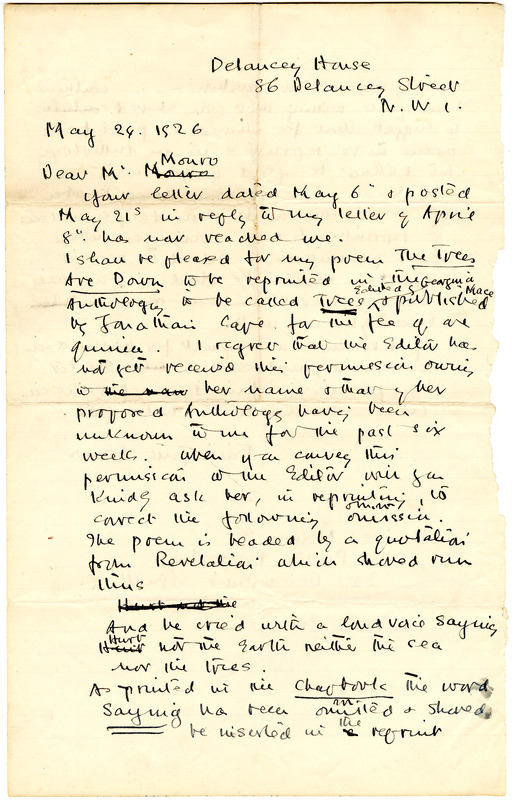 Delancey House
86 Delancey Street
N.W.1.
May 24. 1926
Monro
Dear Mr. Monro
Your letter dated May 6th & posted
May 21st in reply to my letter of April
8th has now reached me.
I shall be pleased for my poem The Trees
Are Down to be reprinted in the
Edited by Georgina Mace
Anthology to be called Trees, & published
by Jonathan Cape for the fee of one
guinea. I regret that the Editor has
not yet received this permission owing
to the name her name & that of her
proposed Anthology having been
unknown to me for the past six
weeks. When you convey this
permission to the Editor will you
kindly ask her, in reprinting, to
correct the following omission.
The poem is headed by a quotation
from Revelation which should run
thus
Hurt not the
And he cried with a loud voice saying
Hurt
Hurt not the Earth neither the sea
nor the trees.
As printed in the Chapbook the word
Saying has been omitted & should
be inserted in the reprint